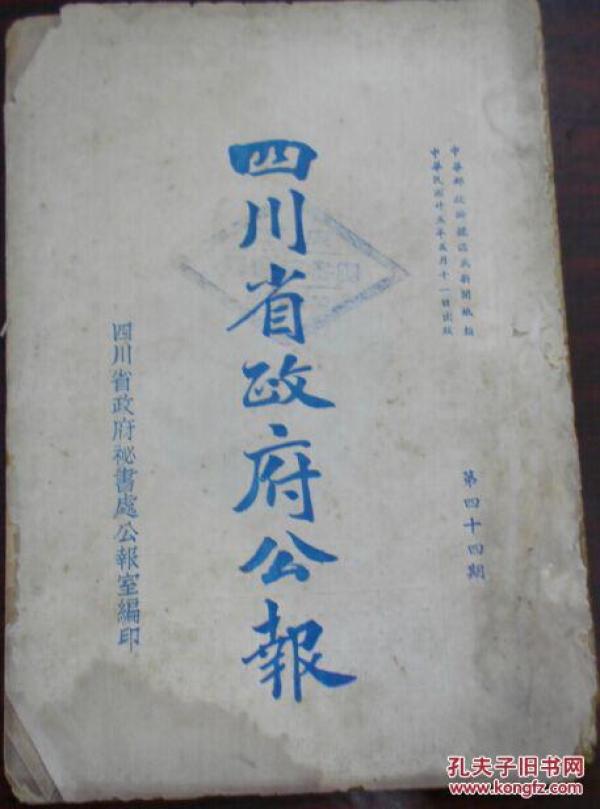 中華郵政掛號認爲新聞紙類
中華民國廿五年五月十一日出版
第四十四期
四川省政府公報
四川省政府祕書處公報室編印
孔夫子旧书网
www.kongfz.com